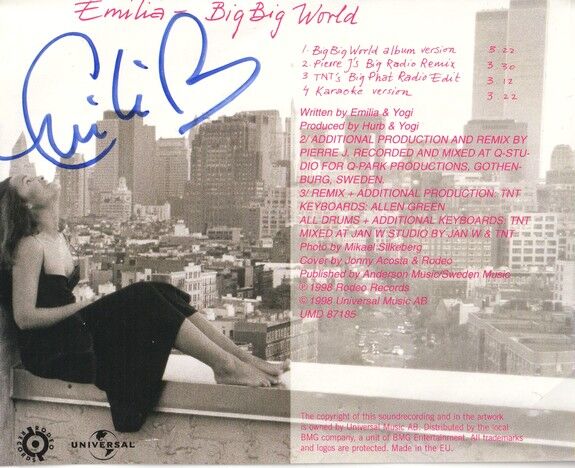 Emilia – Big Big World
1. Big Big World album version 5.22
2. Pierre J's Big Radio Remix 3.30
3 TNT's Big Phat Radio Edit 3.12
4 Karaoke version 3.22
Written by Emilia & Yogi
Produced by Hurb & Yogi
2/ ADDITIONAL PRODUCTION AND REMIX BY
PIERRE J. RECORDED AND MIXED AT Q-STU-
DIO FOR Q-PARK PRODUCTIONS, GOTHEN-
BURG, SWEDEN.
3/ REMIX + ADDITIONAL PRODUCTION: TNT
KEYBOARDS: ALLEN GREEN
ALL DRUMS + ADDITIONAL KEYBOARDS: TNT
MIXED AT JAN W STUDIO BY JAN W & TNT
Photo by Mikael Silkeberg
Cover by Jonny Acosta & Rodeo
Published by Anderson Music/Sweden Music
℗ 1998 Rodeo Records
© 1998 Universal Music AB
UMD 87185
The copyright of this soundrecording and in the artwork
is owned by Universal Music AB. Distributed by the local
BMG company, a unit of BMG Entertainment. All trademarks
and logos are protected. Made in the EU.
RODEO RECORDS
UNIVERSAL